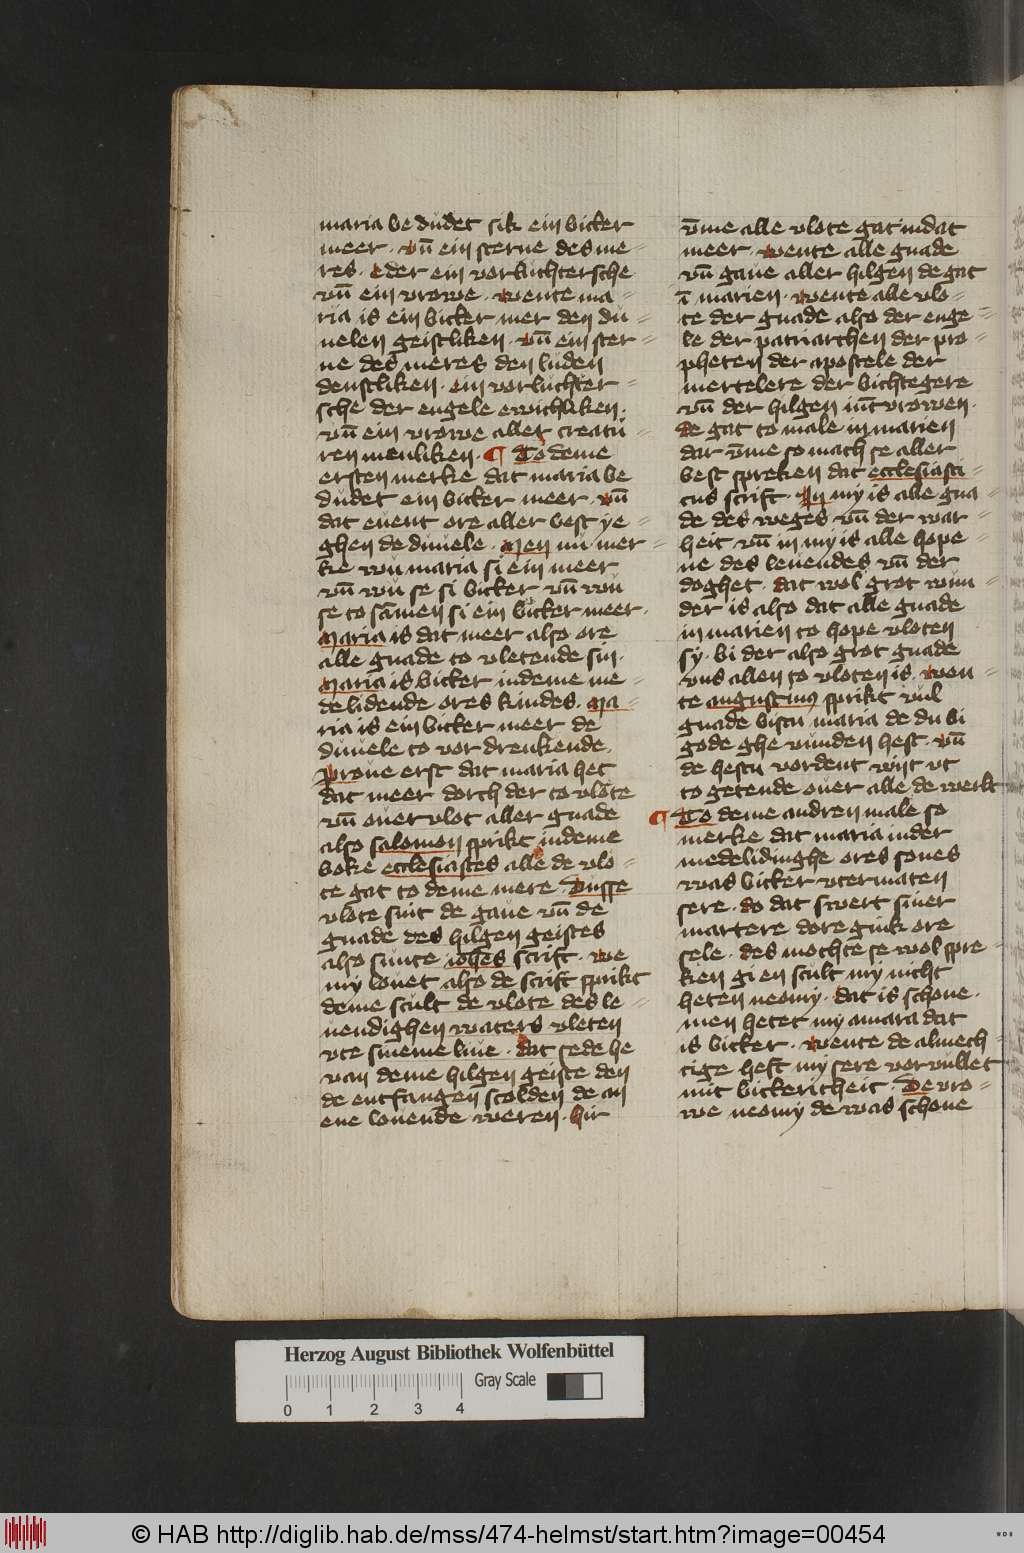 maria be dudet sik ein bicker
meer · vn̄ ein sterne des me-
res · eder ein vorluchtersche
vn̄ ein vrowe · wente ma-
ria is ein bicker mer den du-
uelen geistliken · vn̄ ein ster-
ne des meres den luden
denstliken · ein vorluchter-
sche der engele ewichliken ·
vn̄ ein vrowe aller creatu-
ren menliken · ¶ To deme
ersten merke dat maria be
dudet ein bicker meer vn̄
dat euent ore aller best ye-
ghen de diuele · Men nu mer-
ke wu maria si ein meer
vn̄ wu se si bicker vn̄ wu
se to sāmen si ein bicker meer ·
Maria is dat meer also ore
alle gnade to vletende sin ·
Maria is bicker indeme me-
delidende ores kindes · Ma-
ria is ein bicker meer de
diuele to vor drenkende ·
Proue erst dat maria het
dat meer dorch der to vlote
vn̄ ouer vlot aller gnade
also salomon sprikt indeme
boke ecclesiastes alle de vlo-
te gat to deme mere · Dusse
vlote sint de gaue vn̄ de
gnade des hilgen geistes
also sunte iohes scrift · We
my louet also de scrift sprikt
deme scult de vlote des le-
uendighen waters vleten
vte sineme liue · dat sede he
van deme hilgen geiste den
de entfangen scolden de an
ene louende weren · hir
v̄me alle vlote gat indat
meer · wente alle gnade
vn̄ gaue aller hilgen de gat
ī marien · wente alle vlo-
te der gnade also der enge-
le der patriarchen der pro-
pheten der apostele der
mertelere der bichtegere
vn̄ der hilgen iūcvrowen ·
de gat to male in marien
dar v̄me so mach se aller
best spreken dat ecclesiasti-
cus scrift · In my is alle gna-
de des weges vn̄ der war-
heit vn̄ in my is alle hope-
ne des leuendes vn̄ der
doghet · dat wol grot wun-
der is also dat alle gnade
in marien to hope vloten
sy · bi der also grot gnade
vns allen to vloten is · wen-
te augustinus sprikt vul
gnade bistu maria de du bi
gode ghe vunden hest · vn̄
de hestu vordent wijt vt
to getende ouer alle de werlt
¶ To deme andren male so
merke dat maria inder
medelidinghe ores sones
was bicker vtermaten
sere · do dat swert siner
martere dore gink ore
sele · des mochte se wol spre-
ken gi en scult my nicht
heten neomy · dat is schone ·
men hetet my amara dat
is bicker · wente de almech-
tige heft my sere vorvullet
mit bickericheit · De vro-
we neomy de was schone
Herzog August Bibliothek Wolfenbüttel
Gray Scale
0 1 2 3 4
© HAB http://diglib.hab.de/mss/474-helmst/start.htm?image=00454